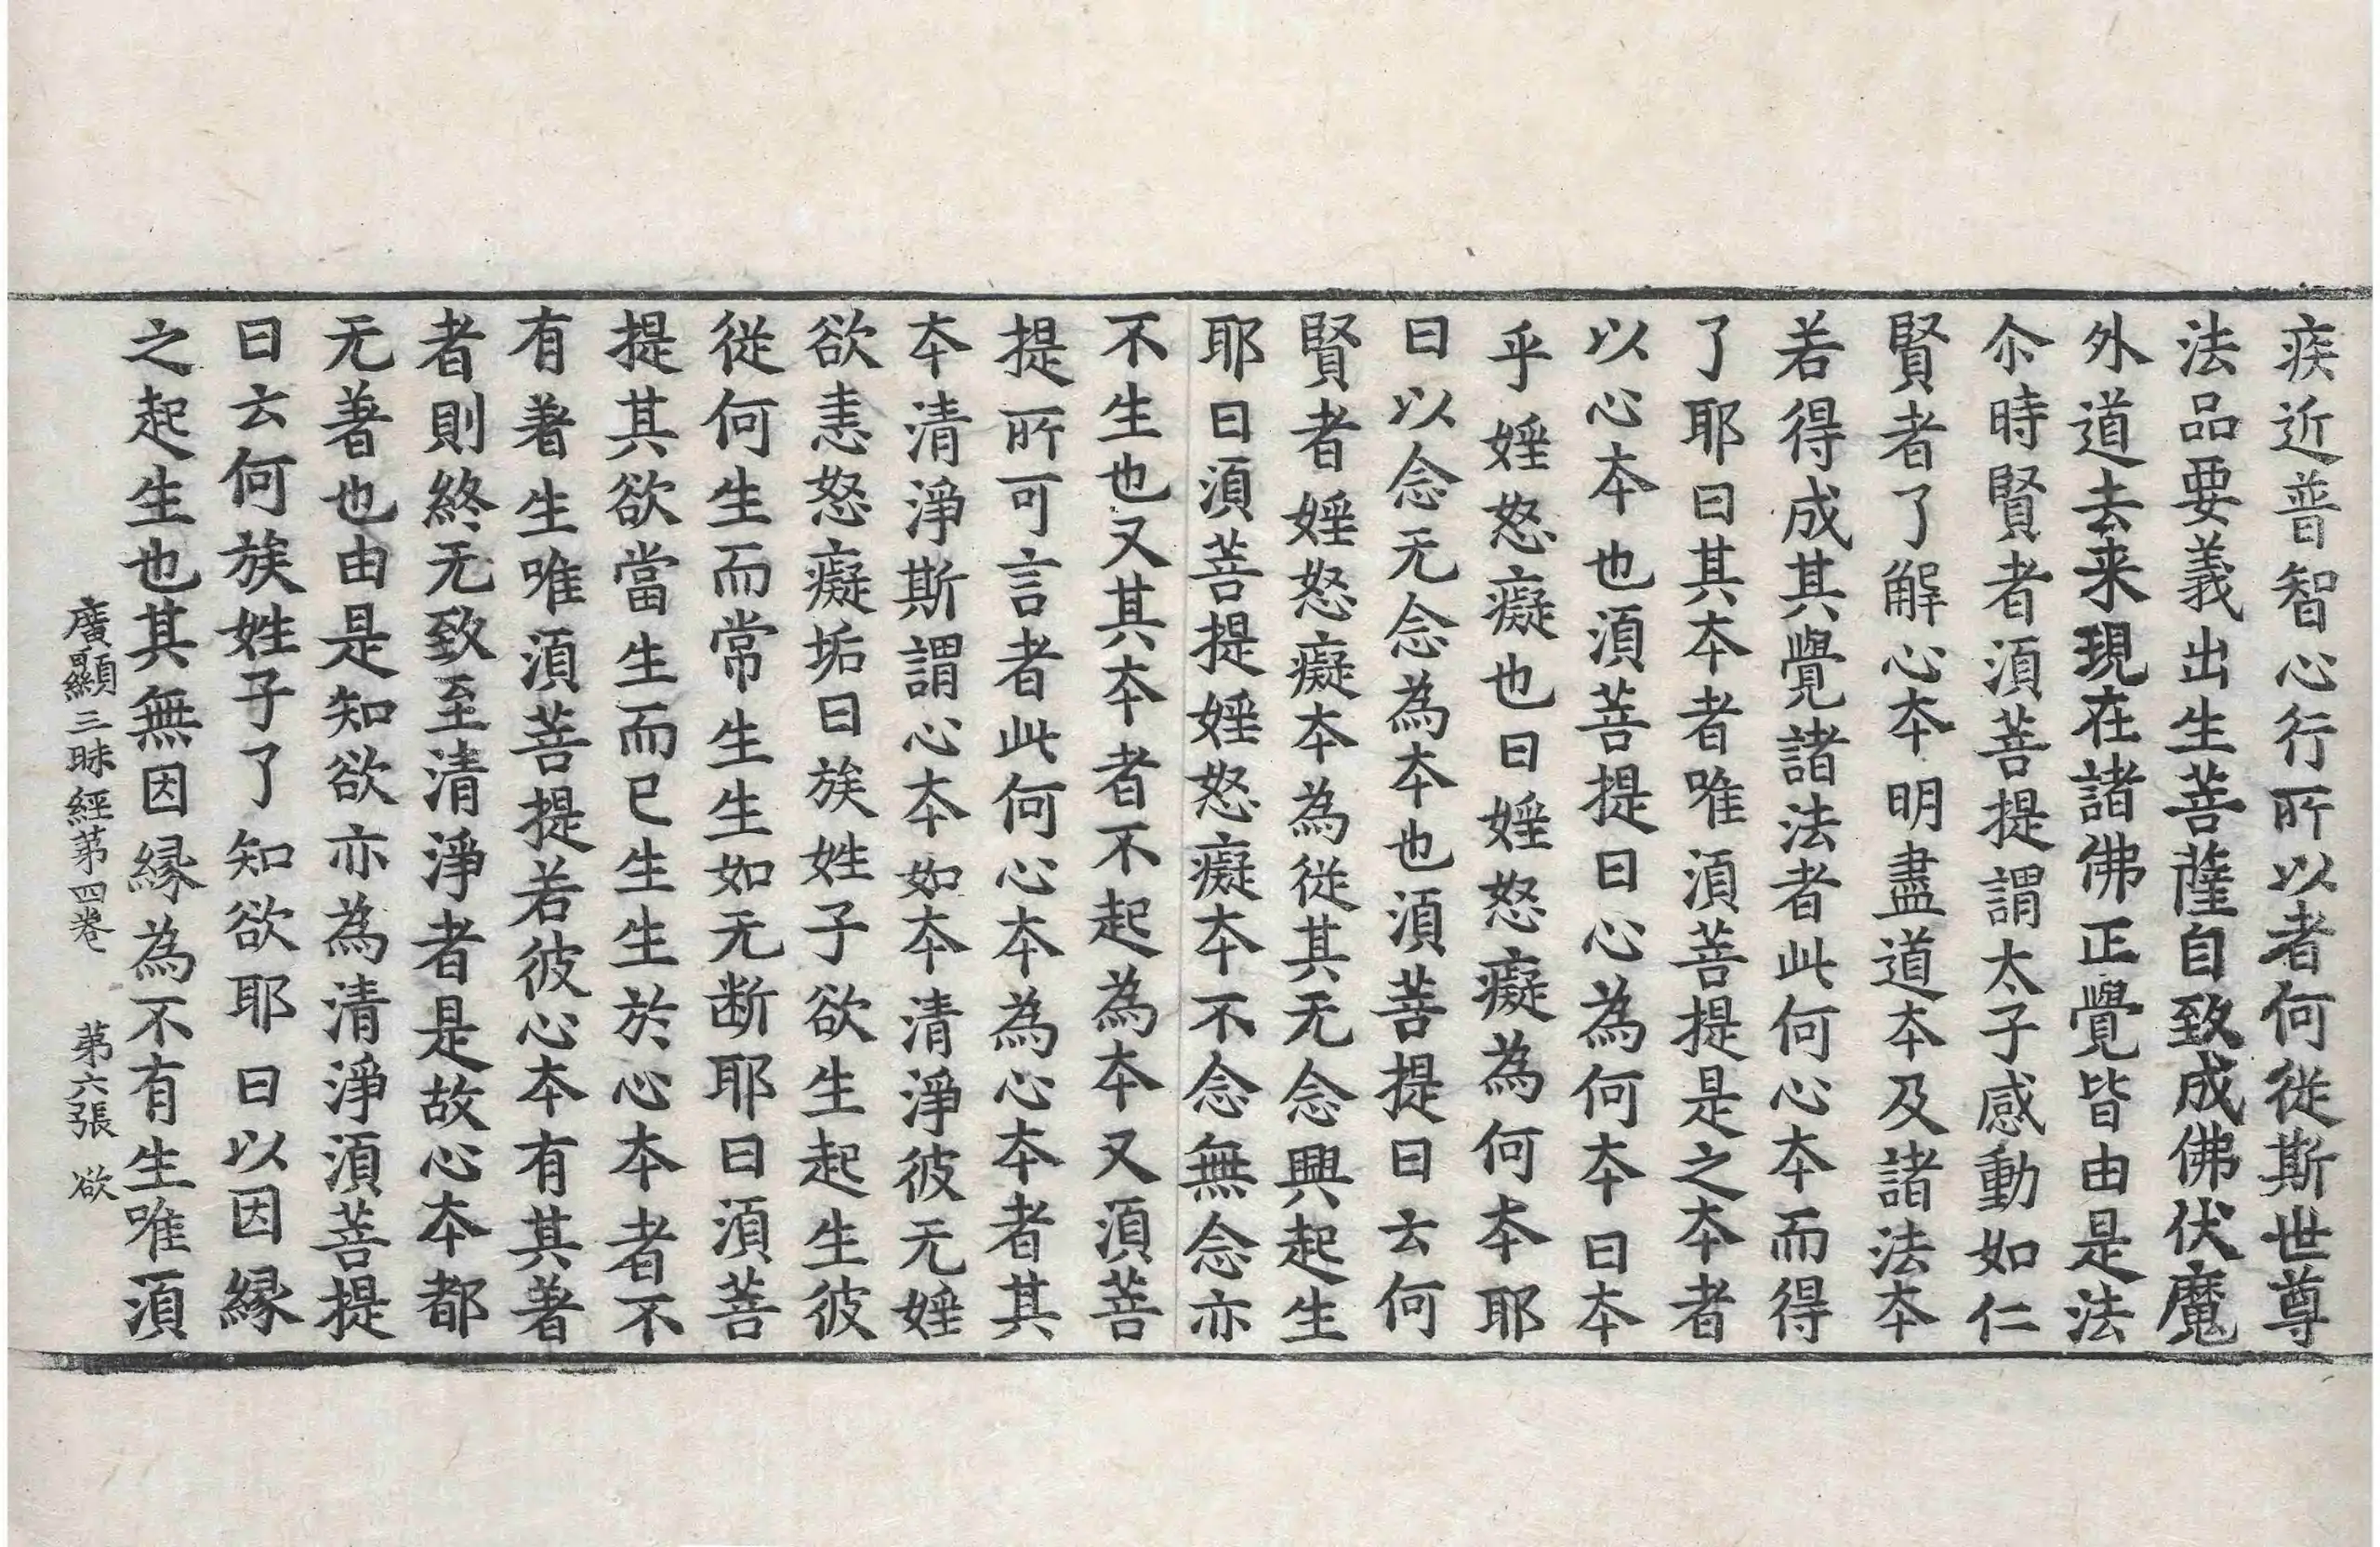 疾近普智心行所以者何從斯世尊
法品要義出生菩薩自致成佛伏魔
外道去来現在諸佛正覺皆由是法
尒時賢者湏菩提謂太子感動如仁
賢者了解心夲明盡道夲及諸法夲
若得成其覺諸法者此何心夲而得
了耶曰其夲者唯湏菩提是之夲者
以心夲也湏菩提曰心為何夲曰夲
乎婬怒癡也曰婬怒癡為何夲耶
曰以念无念為夲也湏菩提曰云何
賢者婬怒癡夲為從其无念興起生
耶曰湏菩提婬怒癡夲不念無念亦
不生也又其夲者不起為夲又湏菩
提所可言者此何心夲為心夲者其
夲清淨斯謂心夲如夲清淨彼无婬
欲恚怒癡垢曰族姓子欲生起生彼
從何生而常生生如无断耶曰湏菩
提其欲當生而已生生於心夲者不
有著生唯湏菩提若彼心夲有其著
者則終无致至清淨者是故心夲都
无著也由是知欲亦為清淨湏菩提
曰云何族姓子了知欲耶曰以因縁
之起生也其無因縁為不有生唯湏
廣顯三昧經苐四卷 苐六張 欲